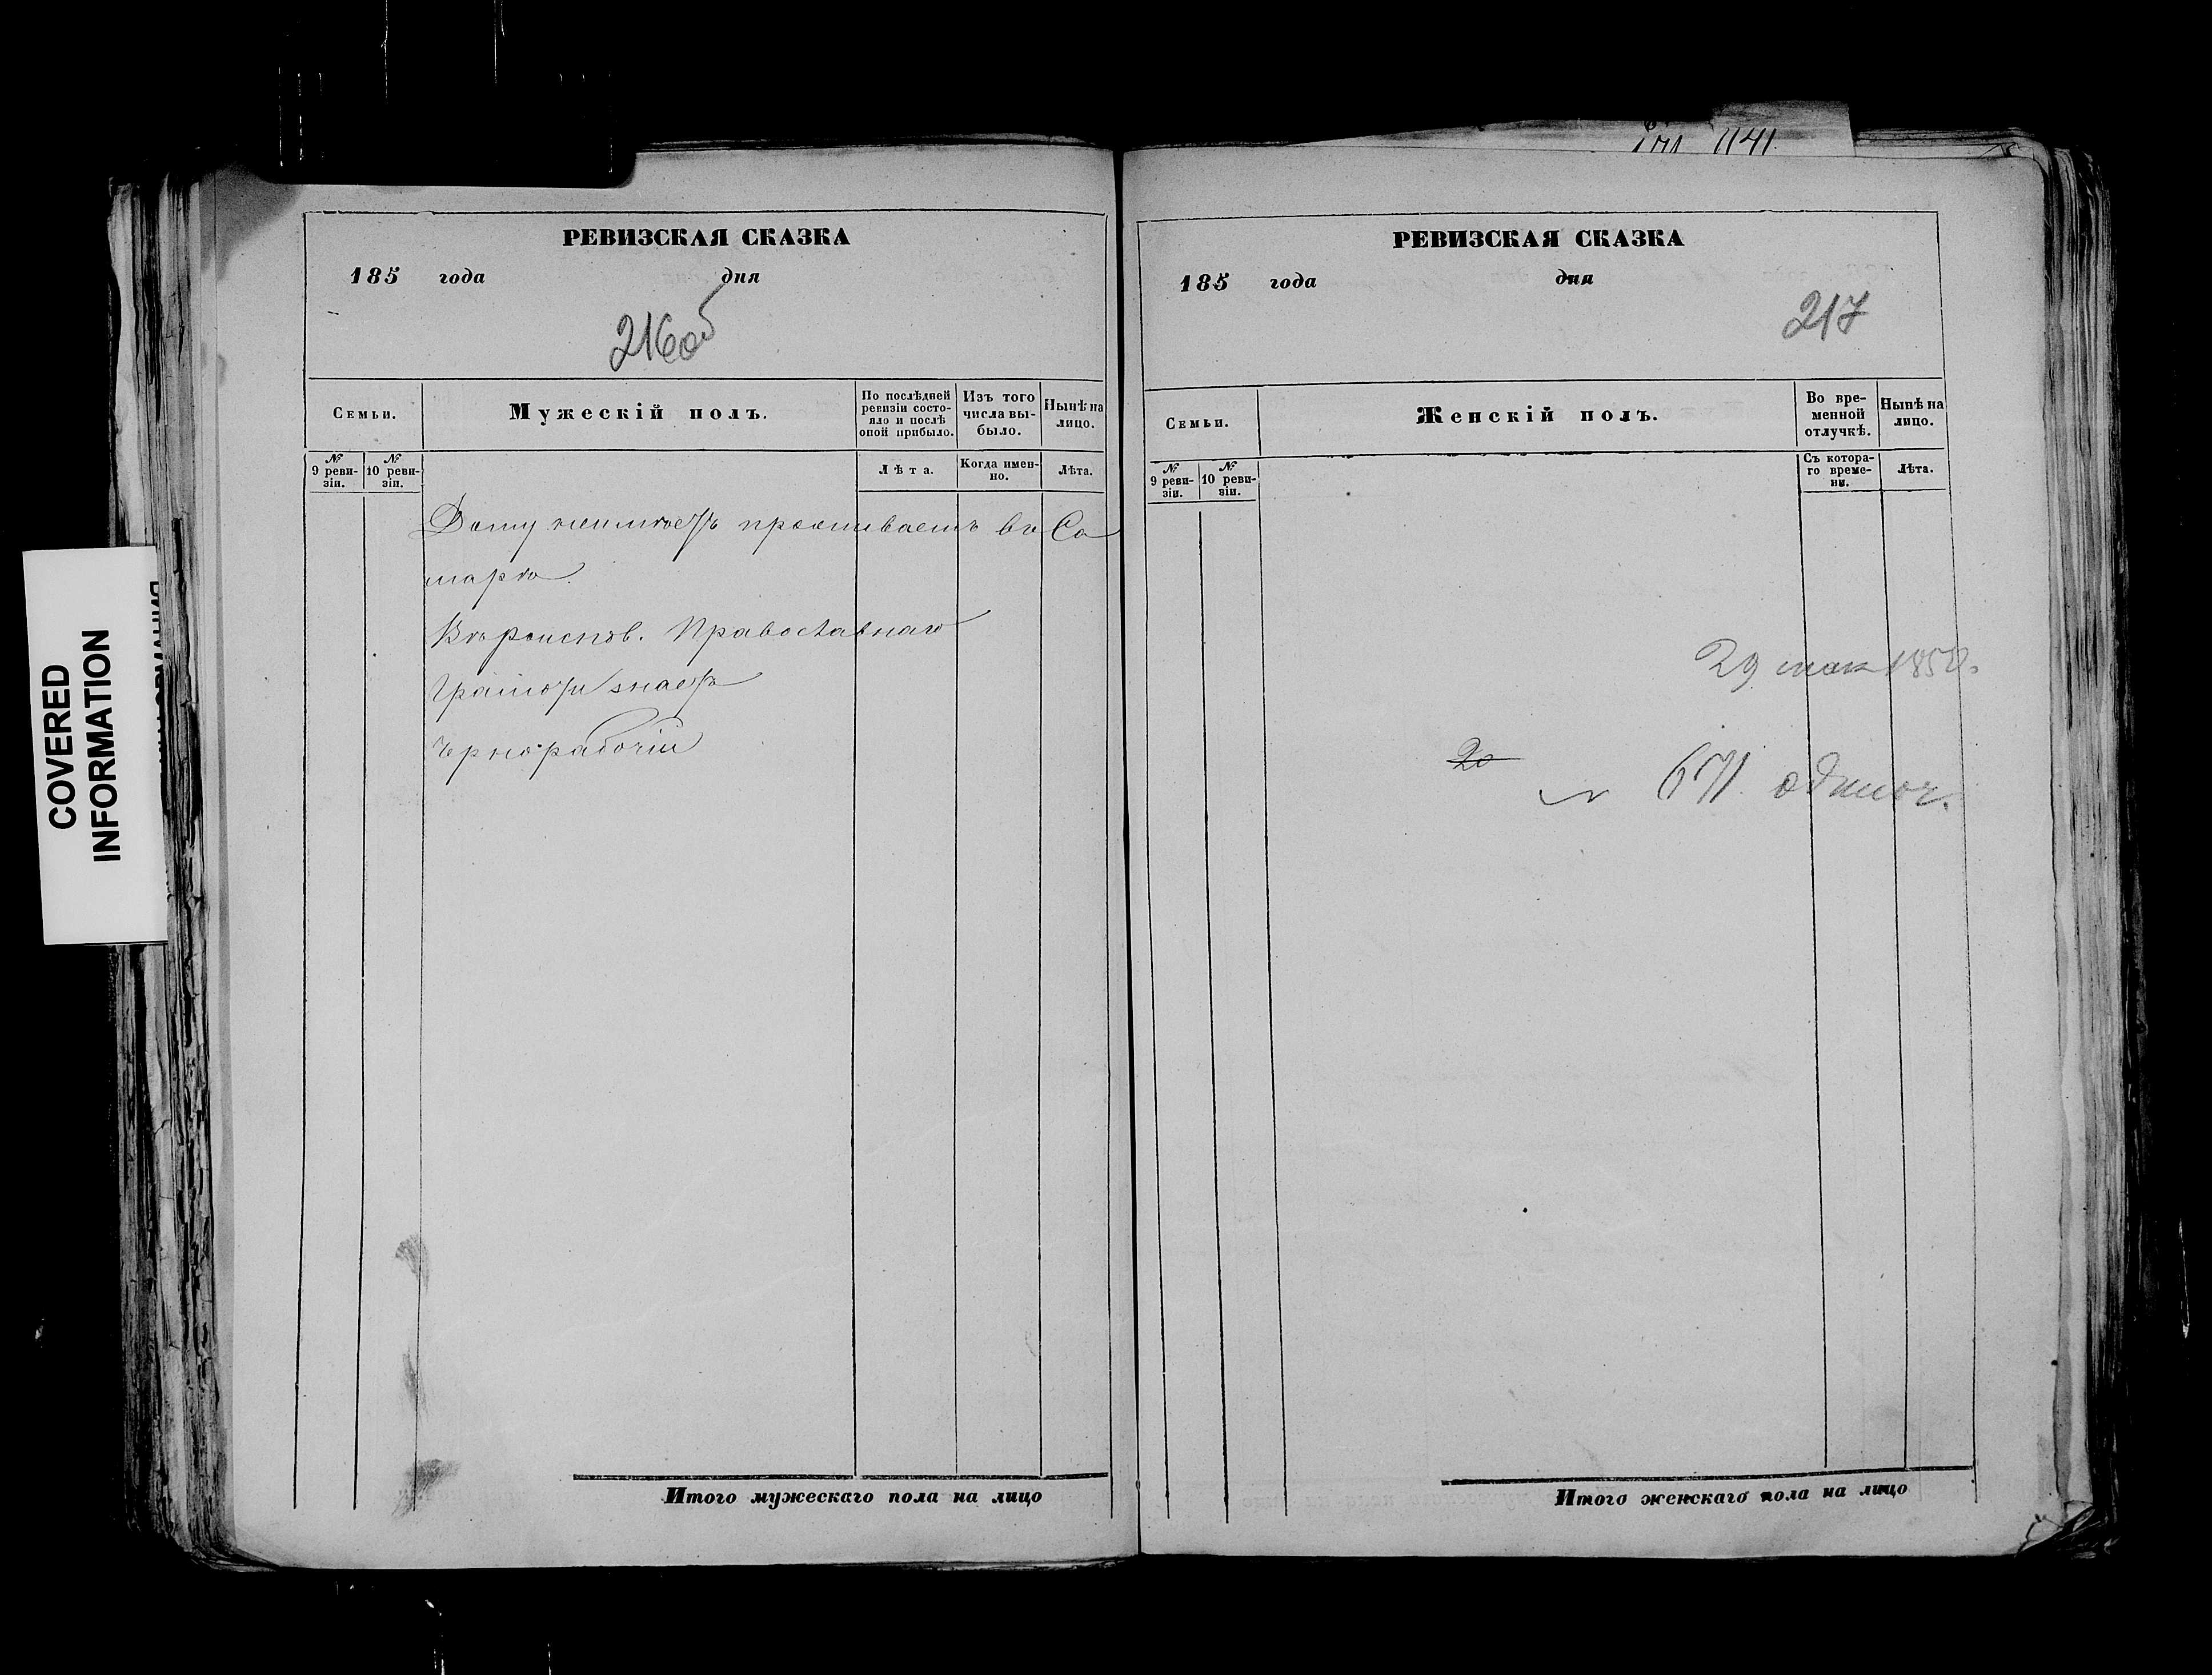 COVERED
INFORMATION
РЕВИЗСКАЯ СКАЗКА
185 года дня
216об
Семьи.
Мужескій полъ.
По послѣдней
ревизіи состо-
яло и послѣ
оной прибыло.
Изъ того
числа вы-
было.
Нынѣ на
лицо.
№
9 реви-
зіи.
№
10 реви-
зіи.
Лѣта.
Когда имен-
но.
Лѣта.
Дому неимѣетъ проживаетъ въ Са
марѣ
Вѣроиспов. Православнаго
Грамоту знаетъ
Чернорабочій
Итого мужескаго пола на лицо
РЕВИЗСКАЯ СКАЗКА
185 года дня
217
Семьи.
Женскій полъ.
Во вре-
менной
отлучкѣ.
Нынѣ на
лицо.
№
9 реви-
зіи.
№
10 реви-
зіи.
Съ котора-
го време-
ни.
Лѣта.
29 мая
20
671. одиноч.
Итого женскаго пола на лицо